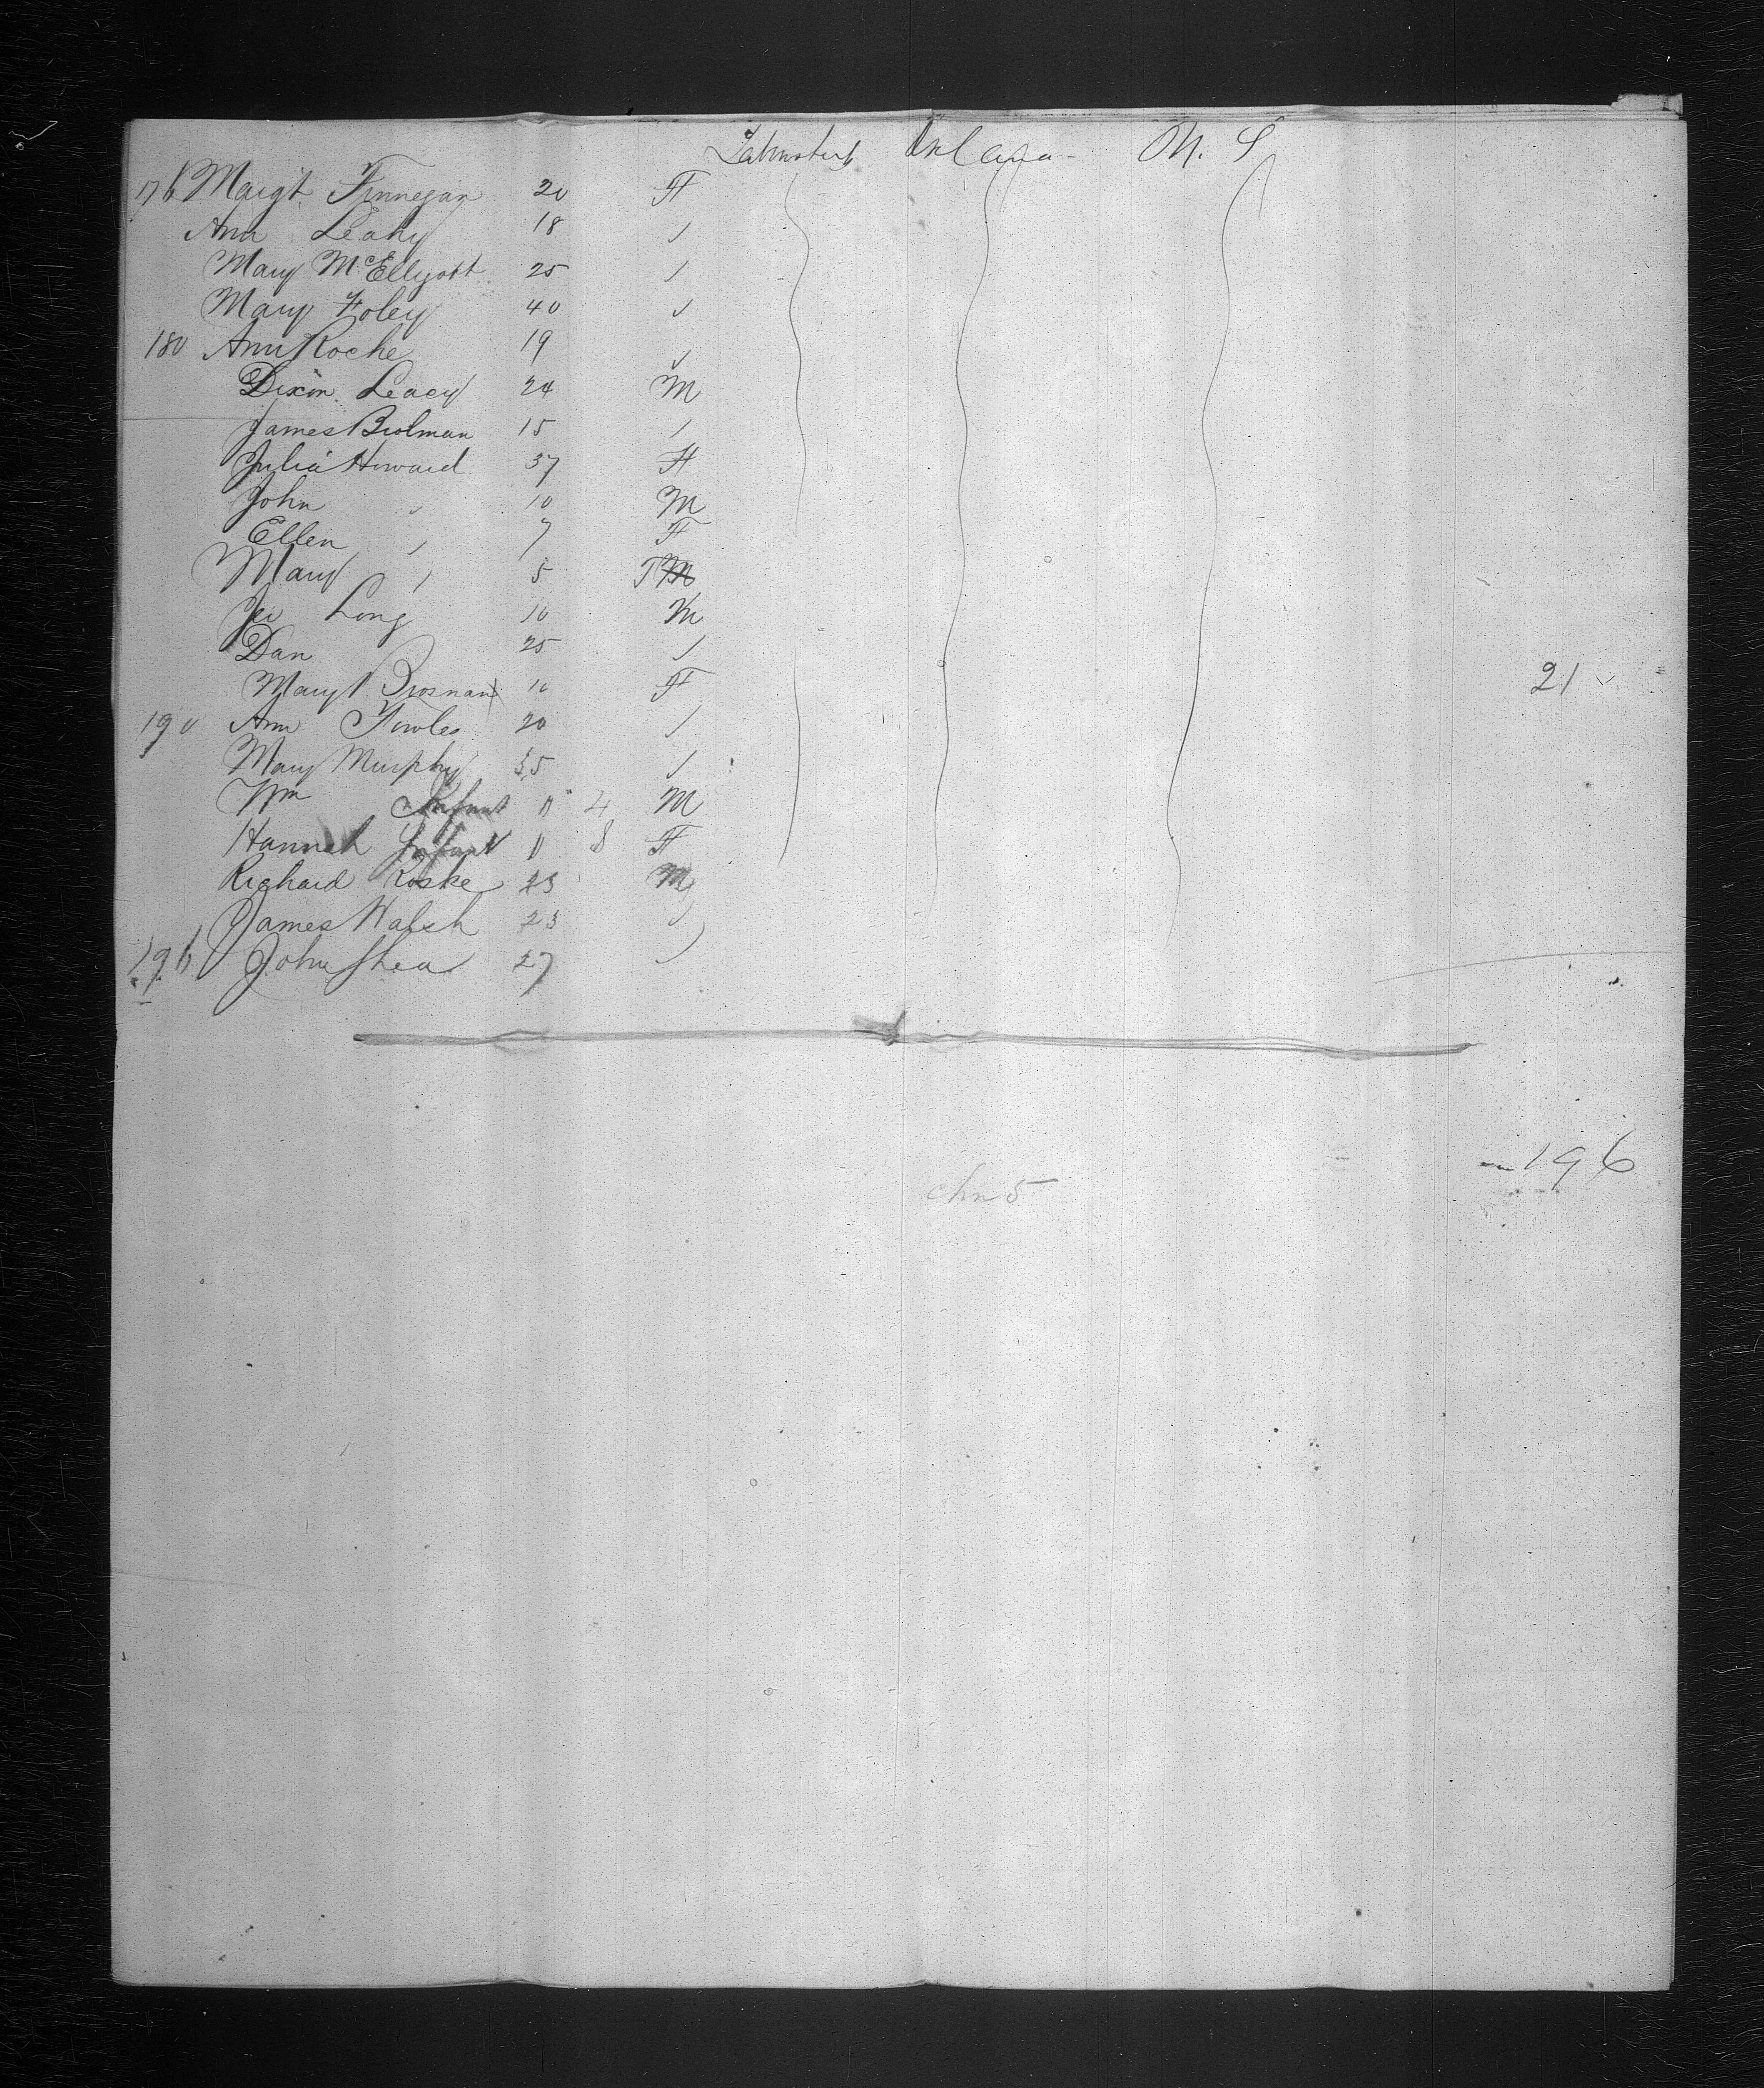 Ireland U. S
176 Margt Finnegan 20 F
Ann Leahy 18 ✓
Mary McEllyott 25 ✓
Mary Foley 40 ✓
180 Ann Roche 19 ✓
Dixon Leacy 24 M
James 15 ✓
Julia Howard 37 F
John " 10 M
Ellen " 7 F
Mary " 5 F M
Long 10 M
Dan 25 ✓
Mary Brosnan 10 F
21
190 Ann Fowles 20 ✓
Mary Murphy 35 ✓
Wm Infant " 4 M
Hannah Infant " 8 F
Richard Roske 23 M
James Walsh 23 ✓
196 John Shea 27 ✓
196
chn 5